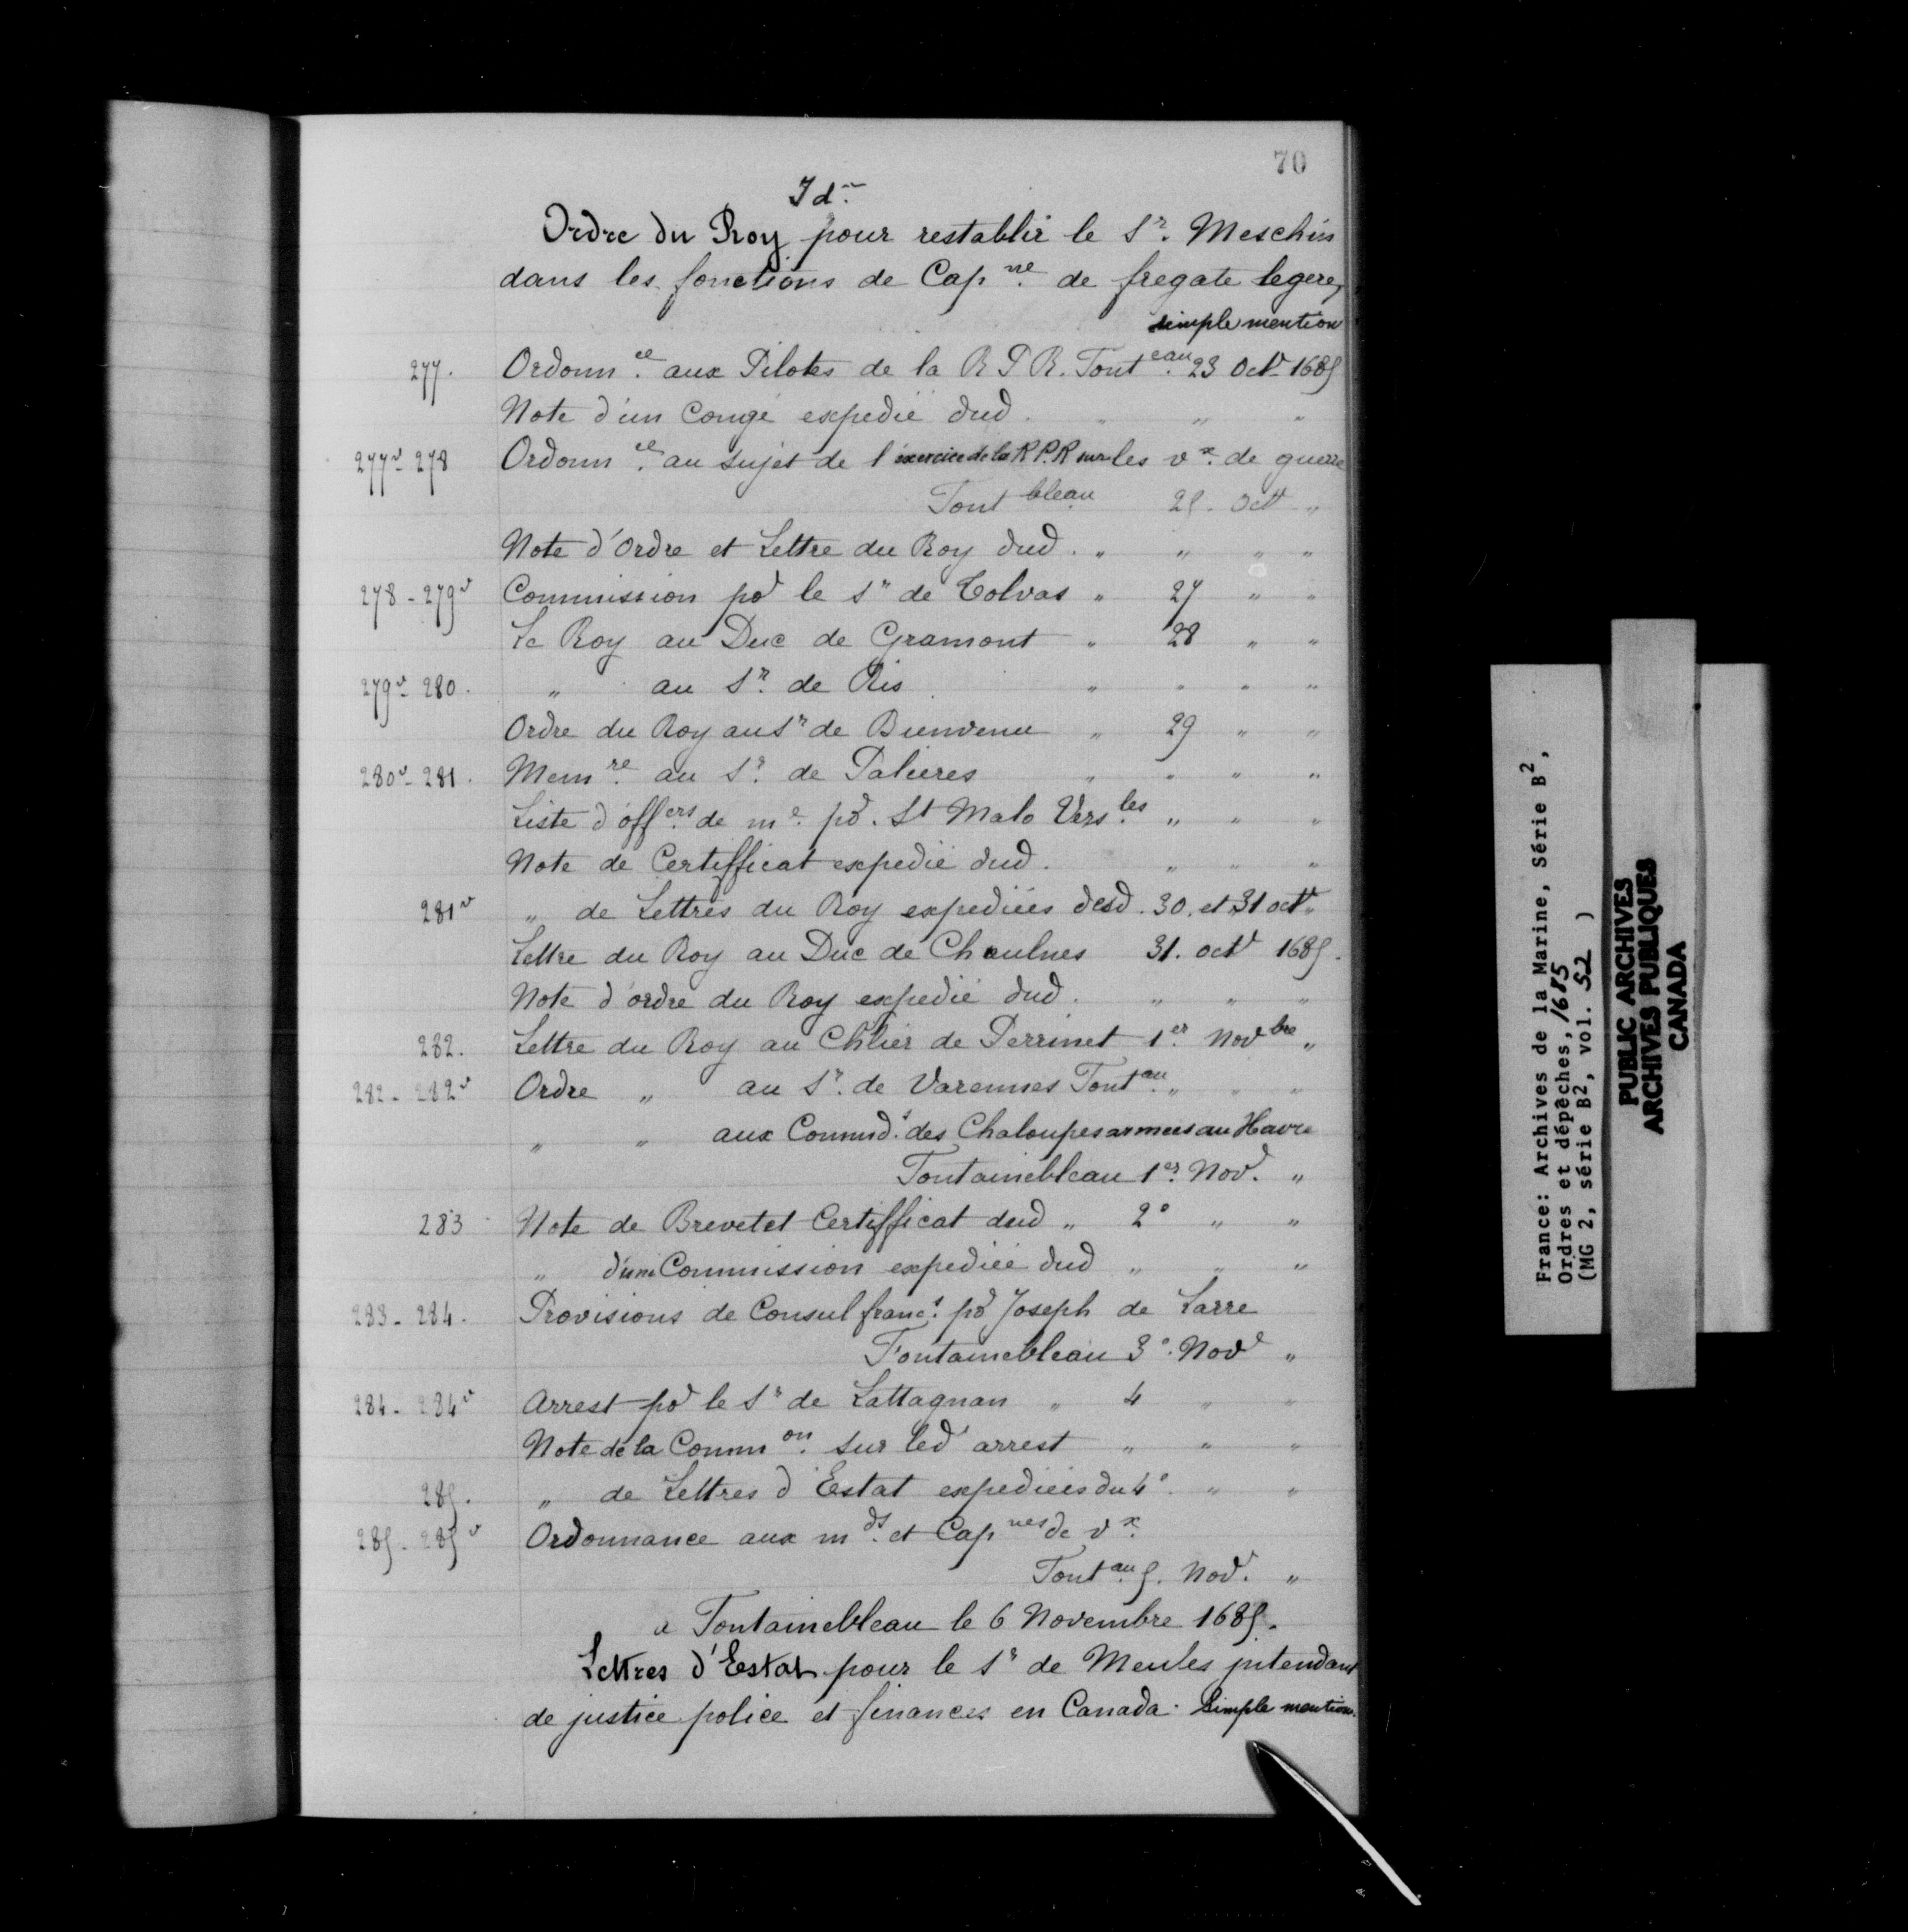 70
Id.m
Ordre du Roy pour restablir le Sr. Meschin
dans les fonctions de Capne. de fregate legere,
simple mention
277. Ordonnce. aux Pilotes de la R P R. Fonteau. 23 Octr 1685
Note d'un Congé expedié dud. " " "
277v- 278 Ordonnce. au sujet de l'exercice de la R.P.R sur les vx. de guerre
Fontbleau. 25. Octr "
Note d'Ordre et Lettre du Roy dud. " " " "
278 - 279v Commission pr le Sr de Colvas " 27 " "
Le Roy au Duc de Gramont " 28 " "
279v- 280. " au Sr. de Ris " " " "
Ordre du Roy au Sr de Bienvenu " 29 " "
280v- 281. Memre. au Sr. de Palieres " " " "
Liste d'officers. de me. pr. St Malo Versles. " " "
Note de Certifficat expedié dud. " " "
281v " de Lettres du Roy expediées desd. 30. et 31 octr "
Lettre du Roy au Duc de Chaulnes 31. octr 1685.
Note d'ordre du Roy expedié dud. " " "
282. Lettre du Roy au Chlier de Perrinet 1er. Novbre "
282 - 282v Ordre " au Sr. de Varennes Fontau. " " "
" " aux Commds. des Chaloupes armées au Havre
Fontainebleau 1er. Nov. "
283 Note de Brevet et Certifficat dud " 2o " "
" d'une Commission expediée dud " " "
283 - 284. Provisions de Consul francs. pr Joseph de Larre
Fontainebleau 3o. Novr "
284 - 284v Arrest pr le Sr de Lattagnan " 4 " "
Note de la Common. sur led arrest " " "
285. " de Lettres d'Estat expediées du 4o. " "
285 - 285v Ordonnance aux mds. et Capnes de vx.
Fontau. 5. Nov. "
a Fontainebleau le 6 Novembre 1685.
Lettres d'Estat pour le Sr de Meules jntendant
de justice police et finances en Canada. Simple mention.
France: Archives de la Marine, Série B2,
Ordres et dépêches, 1685
(MG 2, série B2, vol. 52 )
PUBLIC ARCHIVES
ARCHIVES PUBLIQUES
CANADA